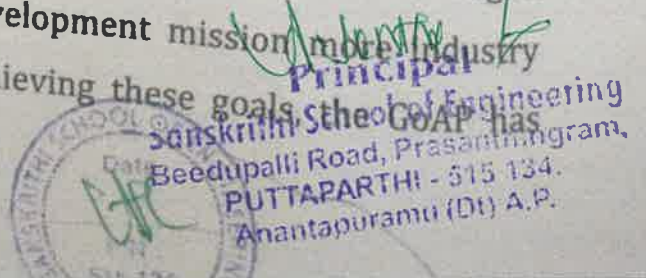 velopment mission more Industry
ieving these goals, the GoAP has
Principal
Sanskrithi School of Engineering
Beedupalli Road, Prasanthigram,
PUTTAPARTHI - 515 134.
Anantapuramu (Dt) A.P.
SANSKRITHI SCHOOL OF